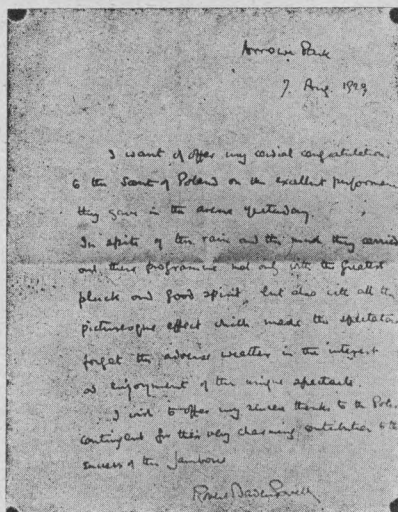 Arrowe Park
7. Aug. 1929
I want to offer my cordial congratulations
to the Scouts of Poland on the excellent performance
they gave in the arena yesterday.
In spite of the rain and the mud they carried
out their programme not only with the greatest
pluck and good spirit, but also with all the
picturesque effect which made the spectators
forget the adverse weather in the interest
and enjoyment of the unique spectacle.
I wish to offer my sincere thanks to the Polish
contingent for their very charming contribution to the
success of the Jamboree
Robert Baden Powell